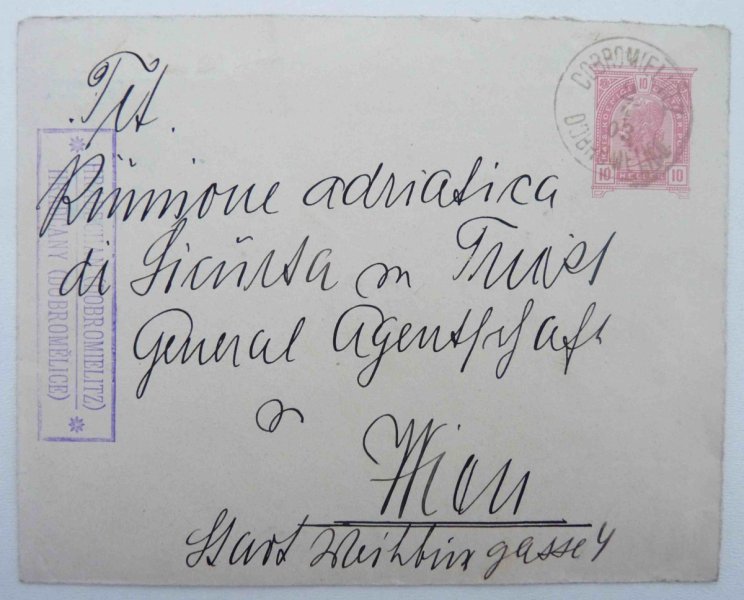 Tit.
Riunione adriatica
di Sicurta in Triest
General Agentschaft
in
Wien
Stadt Weihburggasse 4
DOBROMIELITZ)
(DOBROMĚLICE)
DOBROMIEL
10
10 HELLER 10